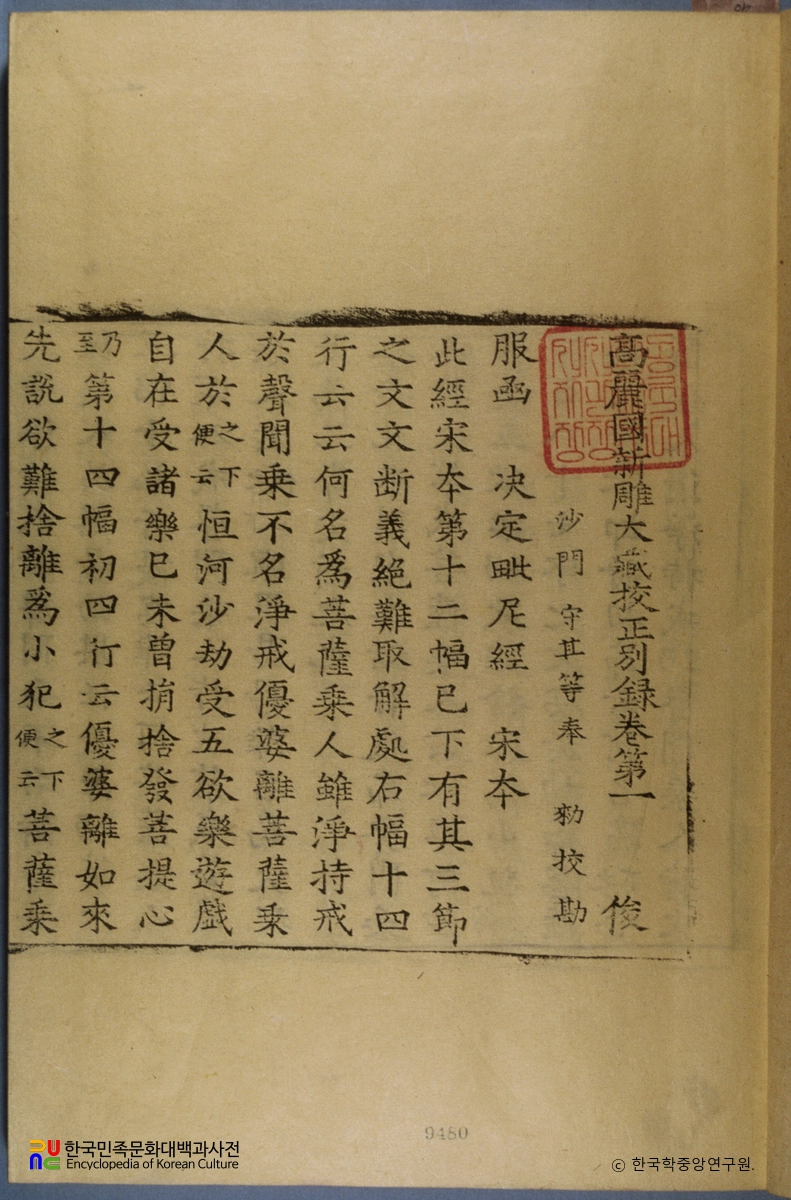 高麗國新雕大藏校正別録卷第一 俊
沙門 守其等奉 勑校勘
服函 决定毗尼經 宋夲
此經宋夲第十二幅已下有其三節
之文文断義絶難取解處右幅十四
行云云何名爲菩薩乗人雖淨持戒
於聲聞乗不名淨戒優婆離菩薩乗
人於之下便云恒河沙劫受五欲樂遊戲
自在受諸樂已未曽捎捨發菩提心
乃至第十四幅初四行云優婆離如來
先說欲難捨離爲小犯之下便云菩薩乗
9480
한국민족문화대백과사전
Encyclopedia of Korean Culture
ⓒ 한국학중앙연구원.